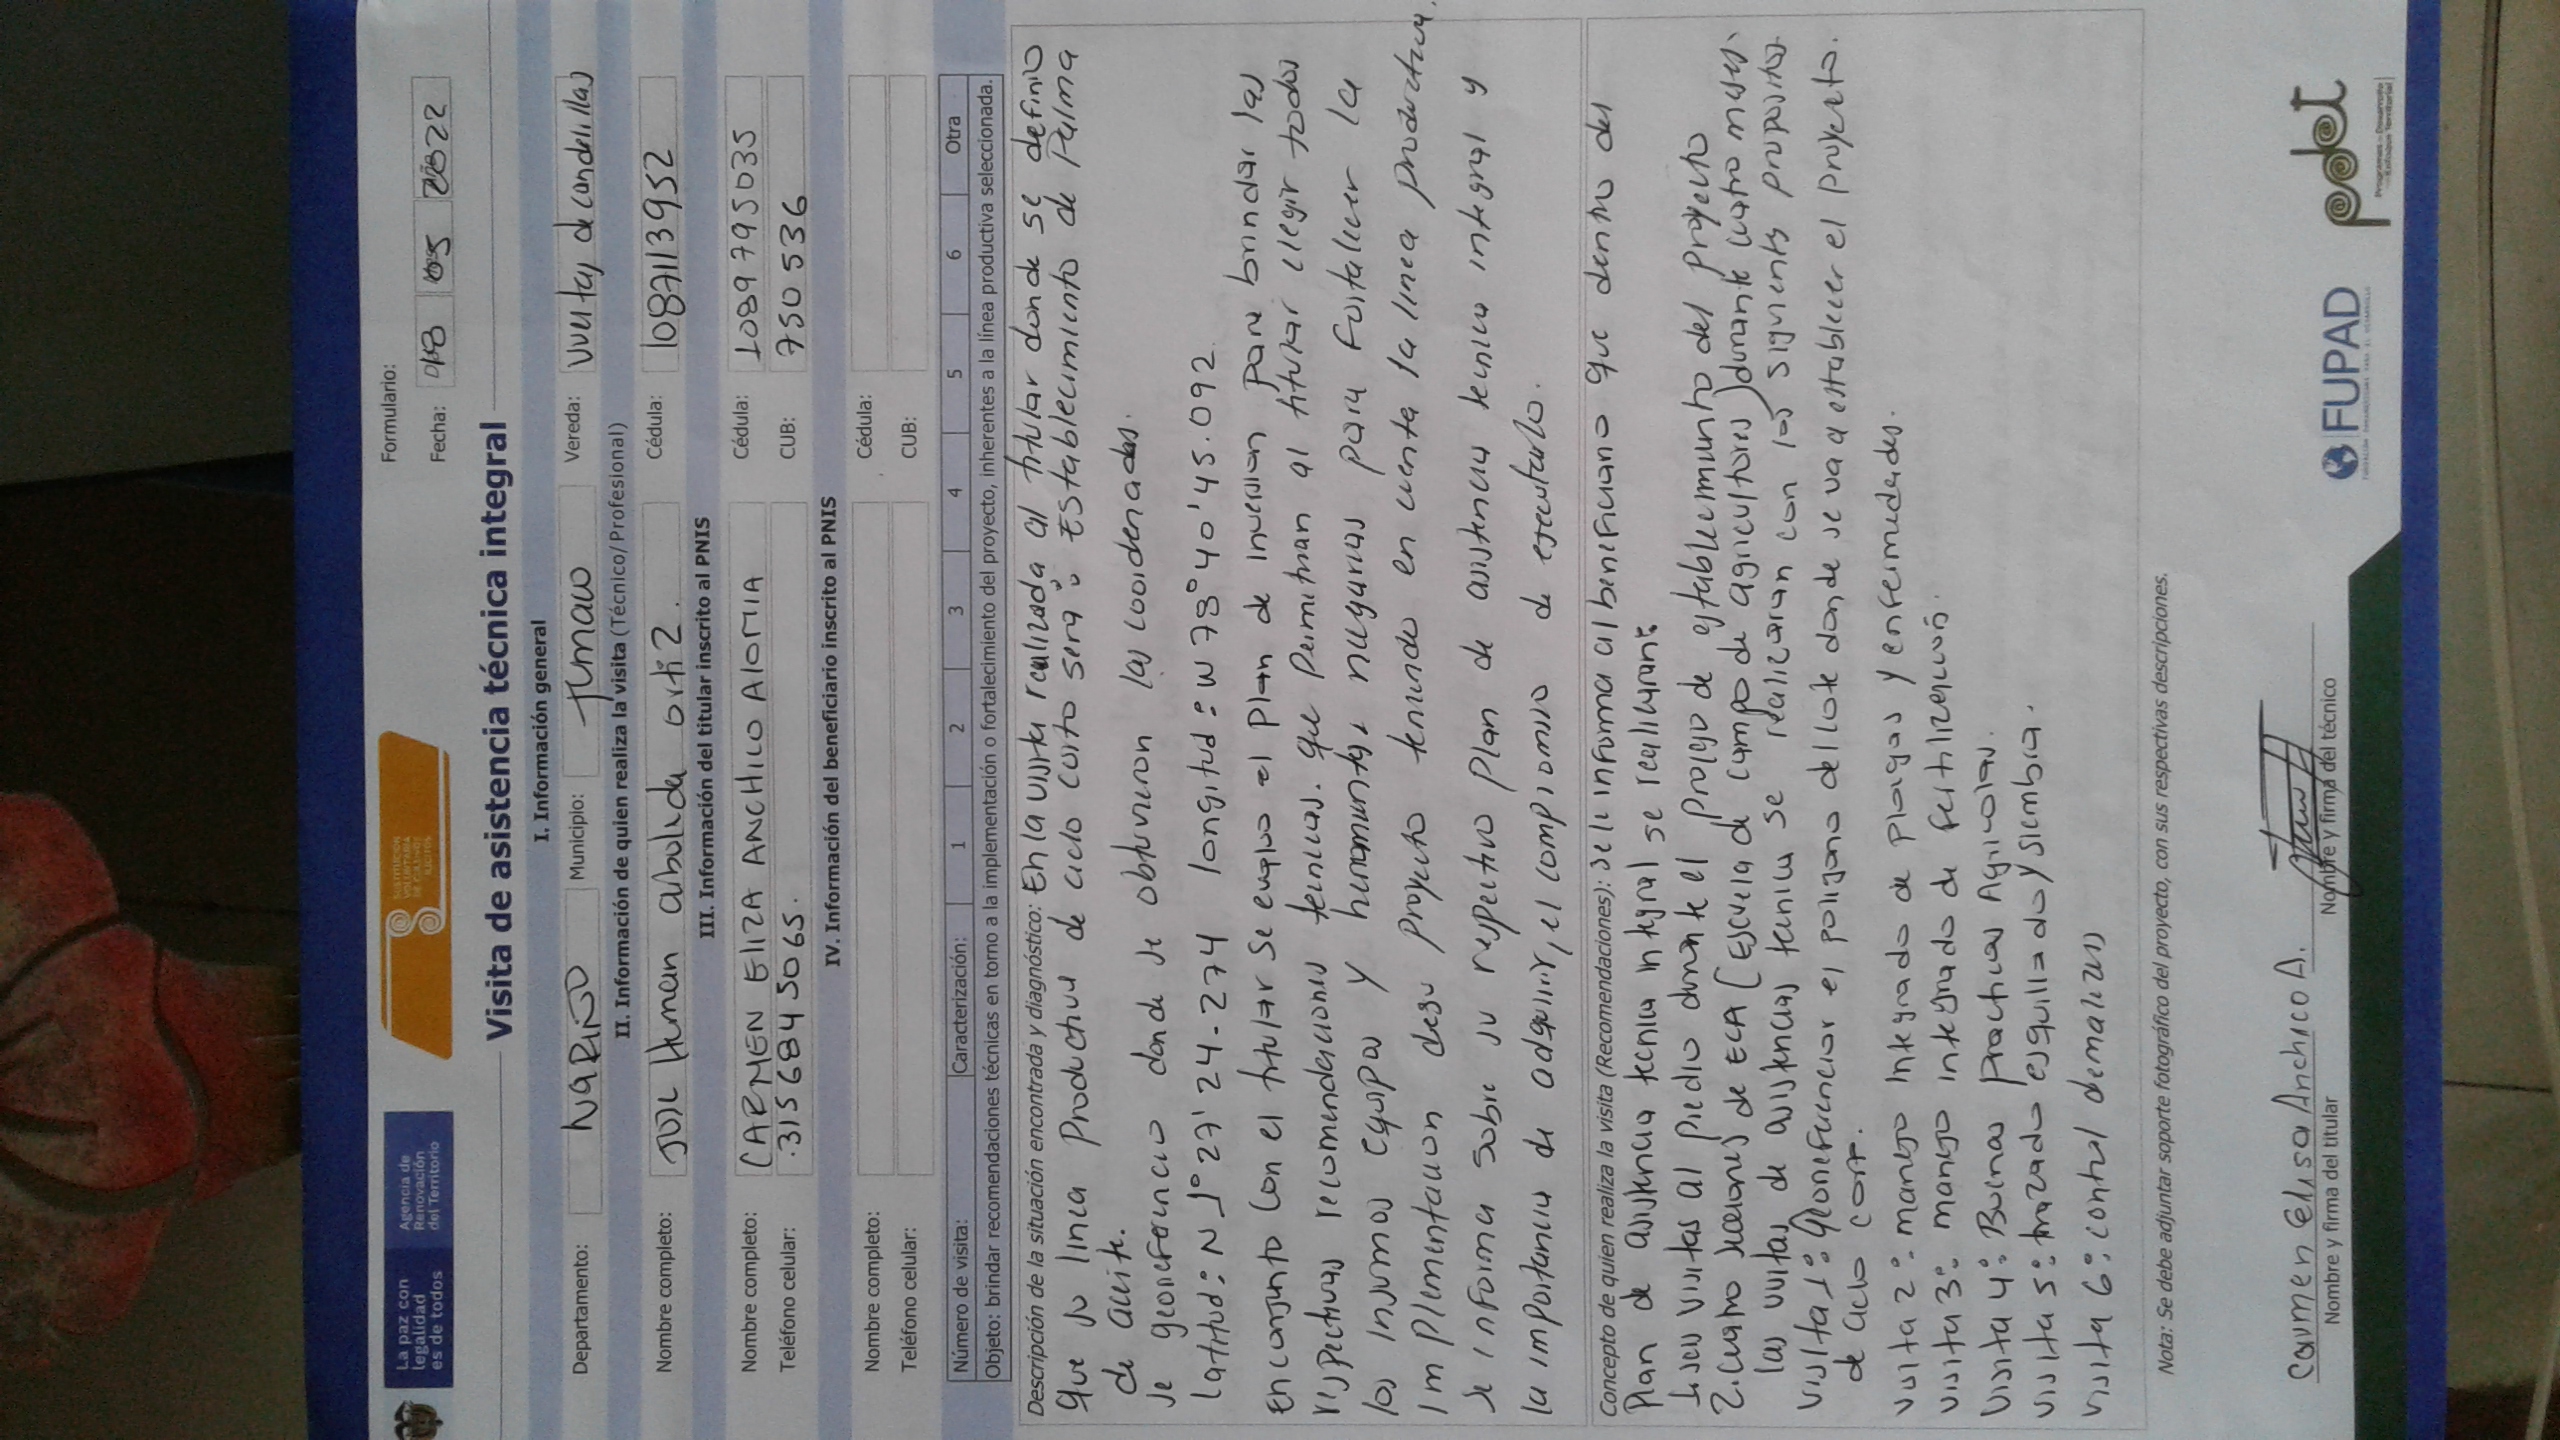 La paz con
legalidad
es de todos
Agencia de
Renovación
del Territorio
SUSTITUCIÓN
VOLUNTARIA
DE CULTIVOS
ILÍCITOS
Formulario:
Fecha: 05 2022
Visita de asistencia técnica integral
I. Información general
Departamento: NARIÑO Municipio: Tumaco Vereda: Vueltas de candelillas
II. Información de quien realiza la visita (Técnico/Profesional)
Nombre completo: Cédula: 1087113952
III. Información del titular inscrito al PNIS
Nombre completo: CARMEN ELIZA ANCHICO ALOMIA Cédula: 1089795035
Teléfono celular: 3156845065. CUB: 7505536
IV. Información del beneficiario inscrito al PNIS
Nombre completo: Cédula:
Teléfono celular: CUB:
Número de visita: Caracterización: 1 2 3 4 5 6 Otra
Objeto: brindar recomendaciones técnicas en torno a la implementación o fortalecimiento del proyecto, inherentes a la línea productiva seleccionada.
Descripción de la situación encontrada y diagnóstico: En la visita realizada al titular donde se definio
que su linea Productiva de ciclo corto sera: Establecimiento de Palma
de aceite.
se georeferencio donde se obtuvieron las coordenadas.
Latitud: N 1°27'24.274 longitud: W 78°40'45.092
En conjunto con el titular se evaluo el Plan de inversion para brindar las
respectivas recomendaciones tecnicas. que permitan al titular elegir todos
los insumos equipos y herramientas necesarias para fortalecer la
implementacion de su proyecto teniendo en cuenta la linea productiva.
se informa sobre su respectivo plan de asistencia tecnica integral y
la importancia de adquirir el compromiso de ejecutarlo.
Concepto de quien realiza la visita (Recomendaciones): se le informa al beneficiario que dentro del
Plan de asistencia tecnica integral se realizaran:
1. seis visitas al predio durante el proceso de establecimiento del proyecto
2. cuatro secciones de ECA (Escuela de campo de agricultores) durante cuatro meses.
las visitas de asistencias tecnica se realizaran con los siguients propositos.
visita 1: georeferenciar el poligono del lote donde se va a establecer el proyecto
de ciclo cort.
visita 2: manejo integrado de plagas y enfermedades.
visita 3: manejo integrado de fertilizacion.
visita 4: Buenas practicas Agricolas.
visita 5: trazado y siembra.
visita 6: control de malezas
Nota: Se debe adjuntar soporte fotográfico del proyecto, con sus respectivas descripciones.
Carmen Elisa Anchico A.
Nombre y firma del titular
Nombre y firma del técnico
FUPAD
pdet
Programas de Desarrollo
con Enfoque Territorial